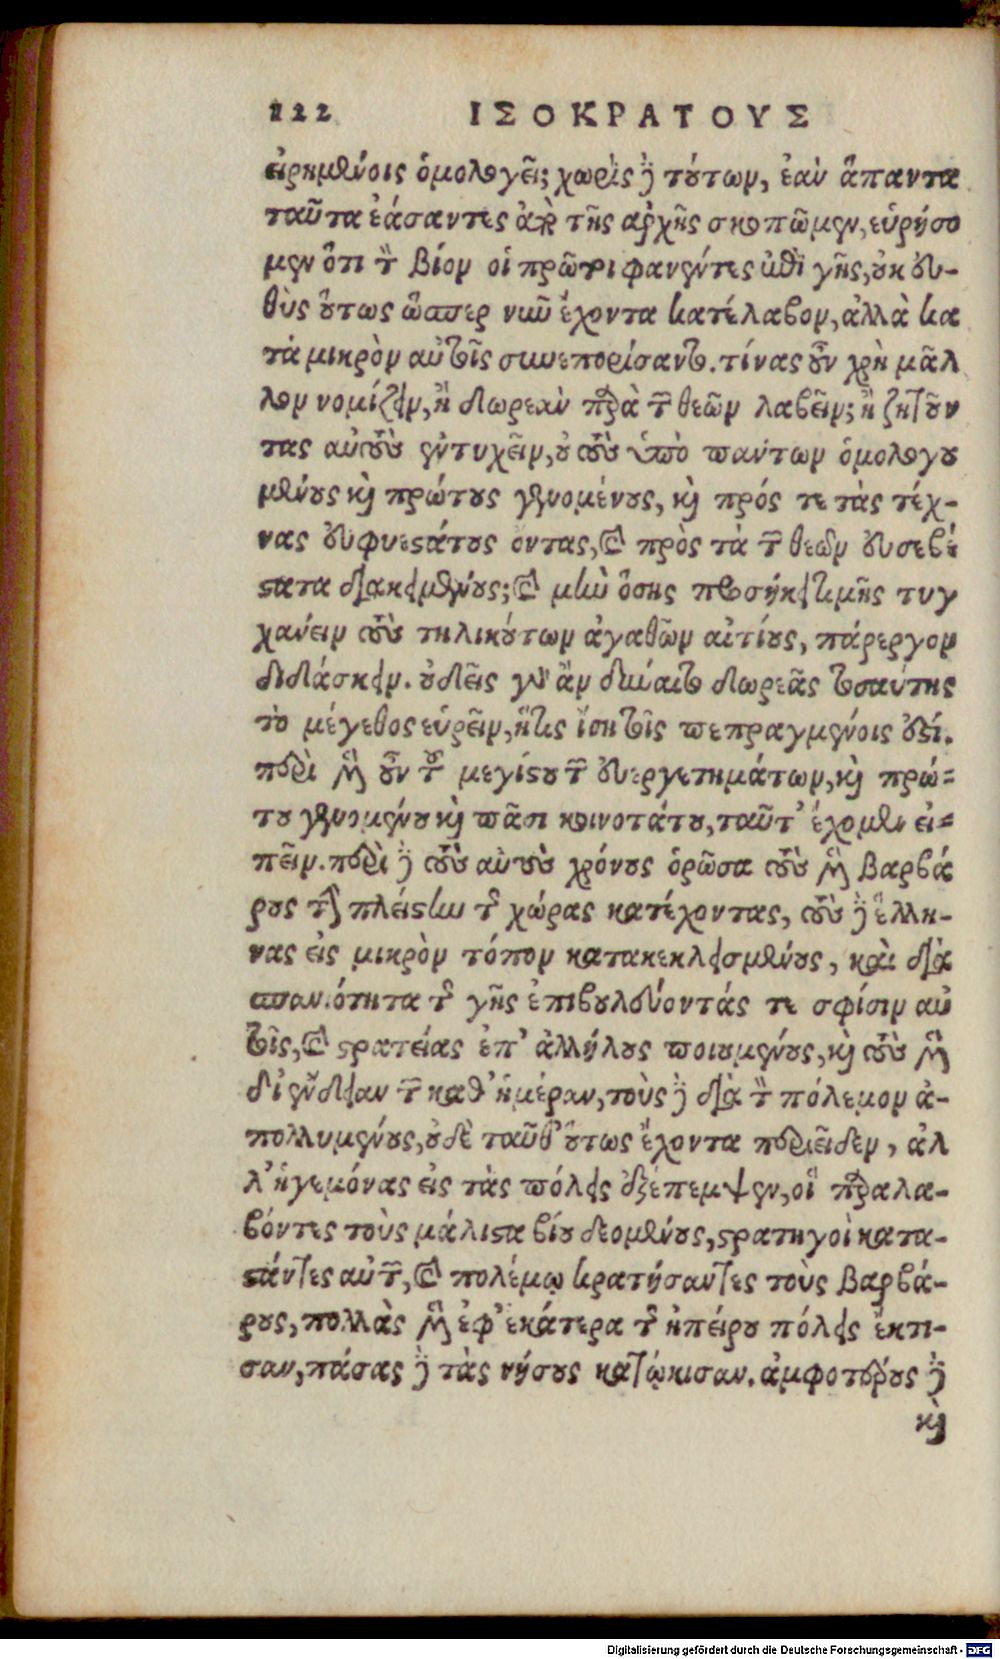 122 ΙΣΟΚΡΑΤΟΥΣ
εἰρημένοις ὁμολογεῖ; χωρὶς δὲ τούτων, ἐὰν ἅπαντα
ταῦτα ἐάσαντες ἀπὸ τῆς ἀρχῆς σκοπῶμεν, εὑρήσο
μεν ὅτι τὸν βίον οἱ πρῶτοι φανέντες ἐπὶ γῆς, οὐκ εὐ-
θὺς οὕτως ὥσπερ νῦν ἔχοντα κατέλαβον, ἀλλὰ κα
τὰ μικρὸν αὐτοῖς συνεπορίσαντο. τίνας οὖν χρὴ μᾶλ
λον νομίζειν, ἢ δωρεὰν παρὰ τῶν θεῶν λαβεῖν; ἢ ζητοῦν
τας αὐτοὺς ἐντυχεῖν, οὐ τοὺς ὑπὸ πάντων ὁμολογου
μένους καὶ πρώτους γενομένους, καὶ πρός τε τὰς τέχ-
νας εὐφυεστάτους ὄντας, καὶ πρὸς τὰ τῶν θεῶν εὐσεβέ
στατα διακειμένους; καὶ μὴν ὅσης προσήκει τιμῆς τυγ
χάνειν τοὺς τηλικούτων ἀγαθῶν αἰτίους, πάρεργον
διδάσκειν. οὐδεὶς γὰρ ἂν δύναιτο δωρεᾶς τοσαύτης
τὸ μέγεθος εὑρεῖν, ἥτις ἴση τοῖς πεπραγμένοις ἐστί.
περὶ μὲν οὖν τοῦ μεγίστου τῶν εὐεργετημάτων, καὶ πρώ-
του γενομένου καὶ πᾶσι κοινοτάτου, ταῦτ' ἔχομεν εἰ-
πεῖν. περὶ δὲ τοὺς αὐτοὺς χρόνους ὁρῶσα τοὺς μὲν βαρβά
ρους τὴν πλείστην τῆς χώρας κατέχοντας, τοὺς δὲ ἕλλη-
νας εἰς μικρὸν τόπον κατακεκλεισμένους, καὶ διὰ
σπανιότητα τῆς γῆς ἐπιβουλεύοντάς τε σφίσιν αὐ
τοῖς, καὶ στρατείας ἐπ' ἀλλήλους ποιουμένους, καὶ τοὺς μὲν
δι' ἔνδειαν τῶν καθ' ἡμέραν, τοὺς δὲ διὰ τὸν πόλεμον ἀ-
πολλυμένους, οὐδὲ ταῦθ' οὕτως ἔχοντα περιεῖδεν, ἀλ
λ' ἡγεμόνας εἰς τὰς πόλεις ἐξέπεμψεν, οἳ παραλα-
βόντες τοὺς μάλιστα βίου δεομένους, στρατηγοὶ κατα-
στάντες αὐτῶν, καὶ πολέμῳ κρατήσαντες τοὺς βαρβά-
ρους, πολλὰς μὲν ἐφ' ἑκάτερα τῆς ἠπείρου πόλεις ἔκτι-
σαν, πάσας δὲ τὰς νήσους κατῴκισαν. ἀμφοτέρους δὲ
καὶ
Digitalisierung gefördert durch die Deutsche Forschungsgemeinschaft - DFG